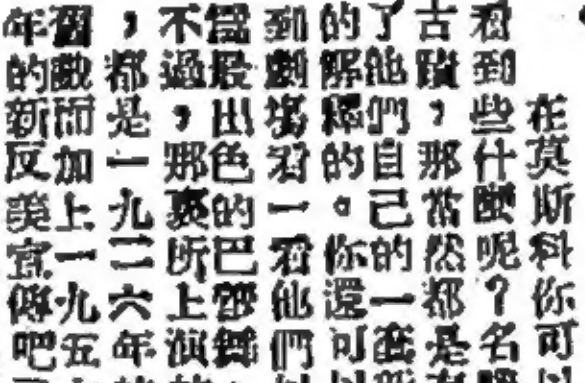 在莫斯科你可以
看到些什麼呢？名勝
古蹟，那當然都是有
了他們自己的一套
的解釋的。你還可以
到劇場看一看他們
最出色的巴蕾舞，
不過，那裏所上演的
，都是一九二六年的
戲而加上一九五
年的新反美宣傳吧